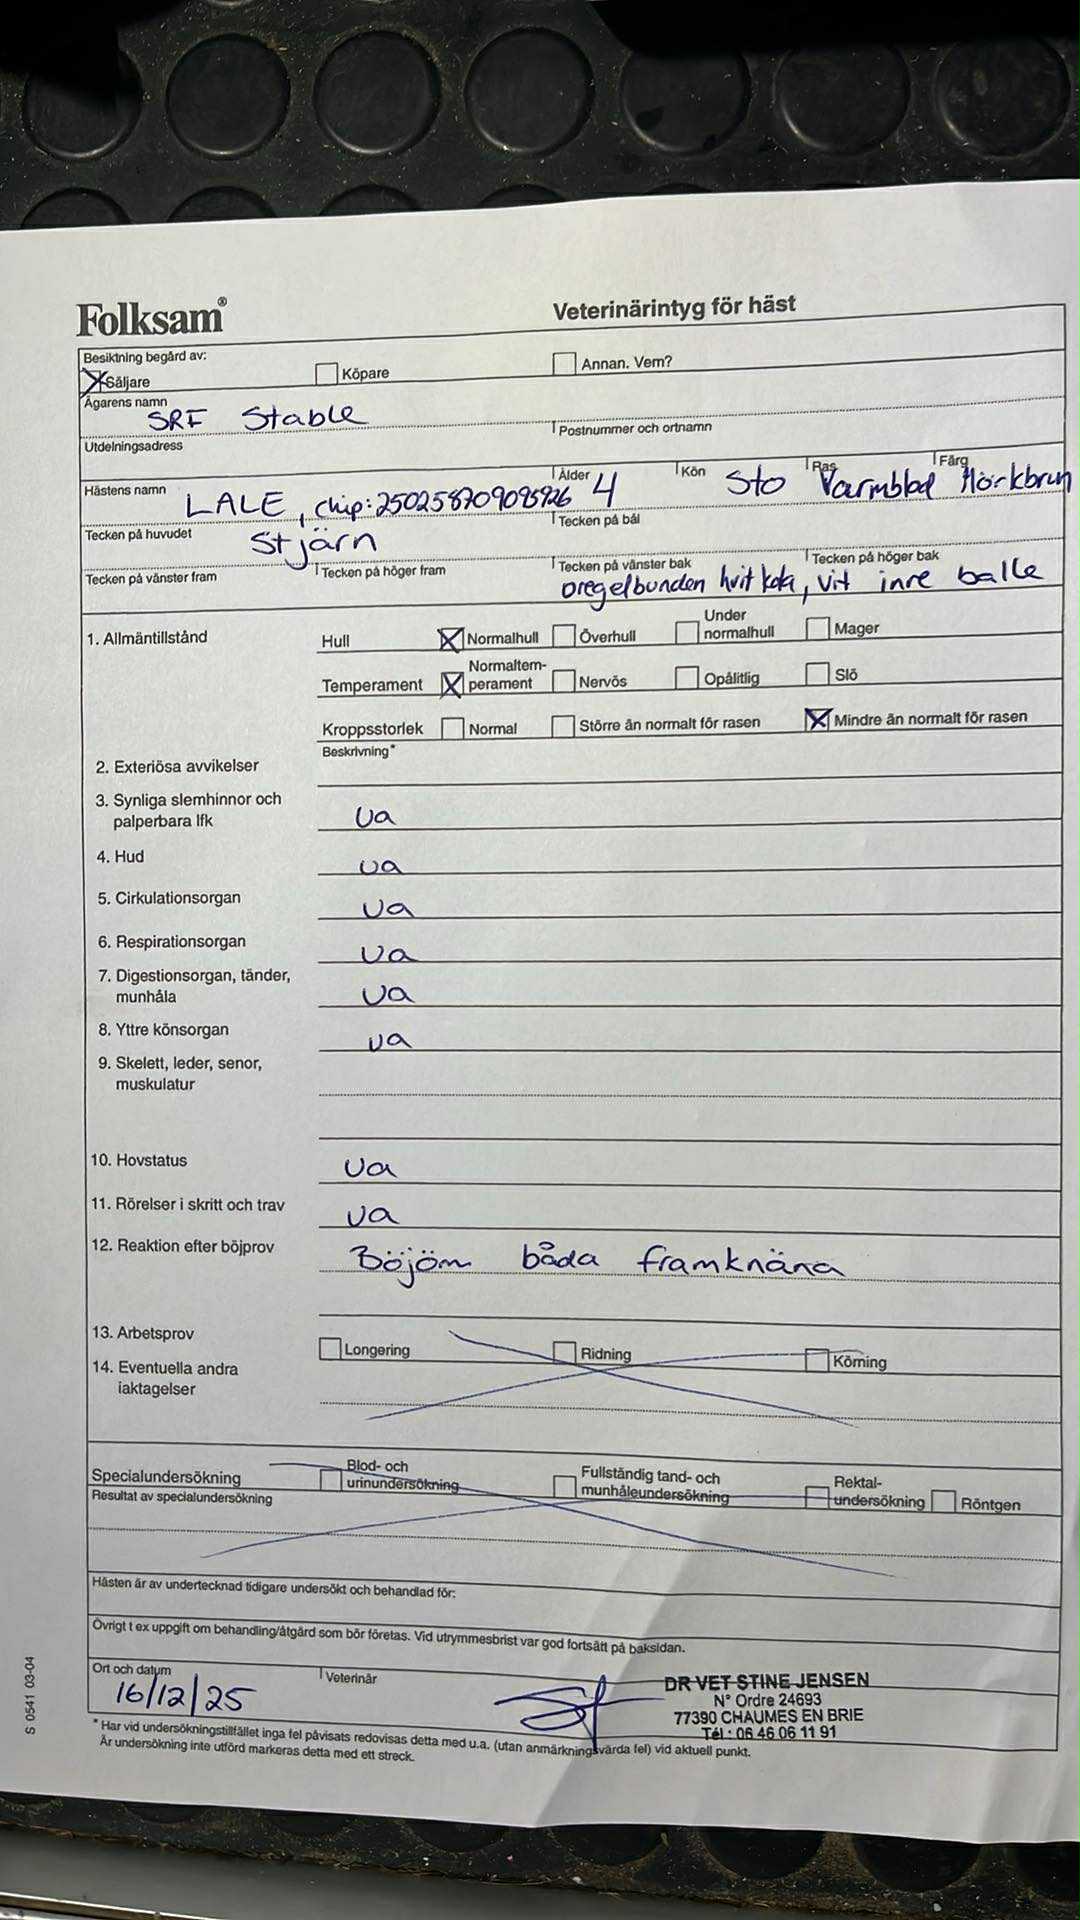 Folksam®
Veterinärintyg för häst
Besiktning begärd av:
Säljare Köpare Annan. Vem?
Ägarens namn
SRF Stable
Utdelningsadress Postnummer och ortnamn
Hästens namn Ålder Kön Ras Färg
LALE, chip: 250258709095926 4 Sto Varmblod Mörkbrun
Tecken på huvudet Tecken på bål
Stjärn
Tecken på vänster fram Tecken på höger fram Tecken på vänster bak Tecken på höger bak
oregelbunden hvit kota, vit inre balle
1. Allmäntillstånd Hull Normalhull Överhull Under normalhull Mager
Temperament Normaltem-perament Nervös Opålitlig Slö
Kroppsstorlek Normal Större än normalt för rasen Mindre än normalt för rasen
Beskrivning*
2. Exteriösa avvikelser
3. Synliga slemhinnor och
palperbara lfk ua
4. Hud ua
5. Cirkulationsorgan ua
6. Respirationsorgan ua
7. Digestionsorgan, tänder,
munhåla ua
8. Yttre könsorgan ua
9. Skelett, leder, senor,
muskulatur
10. Hovstatus ua
11. Rörelser i skritt och trav ua
12. Reaktion efter böjprov Böjöm båda framknäna
13. Arbetsprov Longering Ridning Körning
14. Eventuella andra
iaktagelser
Specialundersökning Blod- och urinundersökning Fullständig tand- och munhåleundersökning Rektal-undersökning Röntgen
Resultat av specialundersökning
Hästen är av undertecknad tidigare undersökt och behandlad för:
Övrigt t ex uppgift om behandling/åtgärd som bör företas. Vid utrymmesbrist var god fortsätt på baksidan.
Ort och datum Veterinär
16/12/25
DR VET STINE JENSEN
N° Ordre 24693
77390 CHAUMES EN BRIE
Tél : 06 46 06 11 91
* Har vid undersökningstillfället inga fel påvisats redovisas detta med u.a. (utan anmärkningsvärda fel) vid aktuell punkt.
Är undersökning inte utförd markeras detta med ett streck.
S 0541 03-04